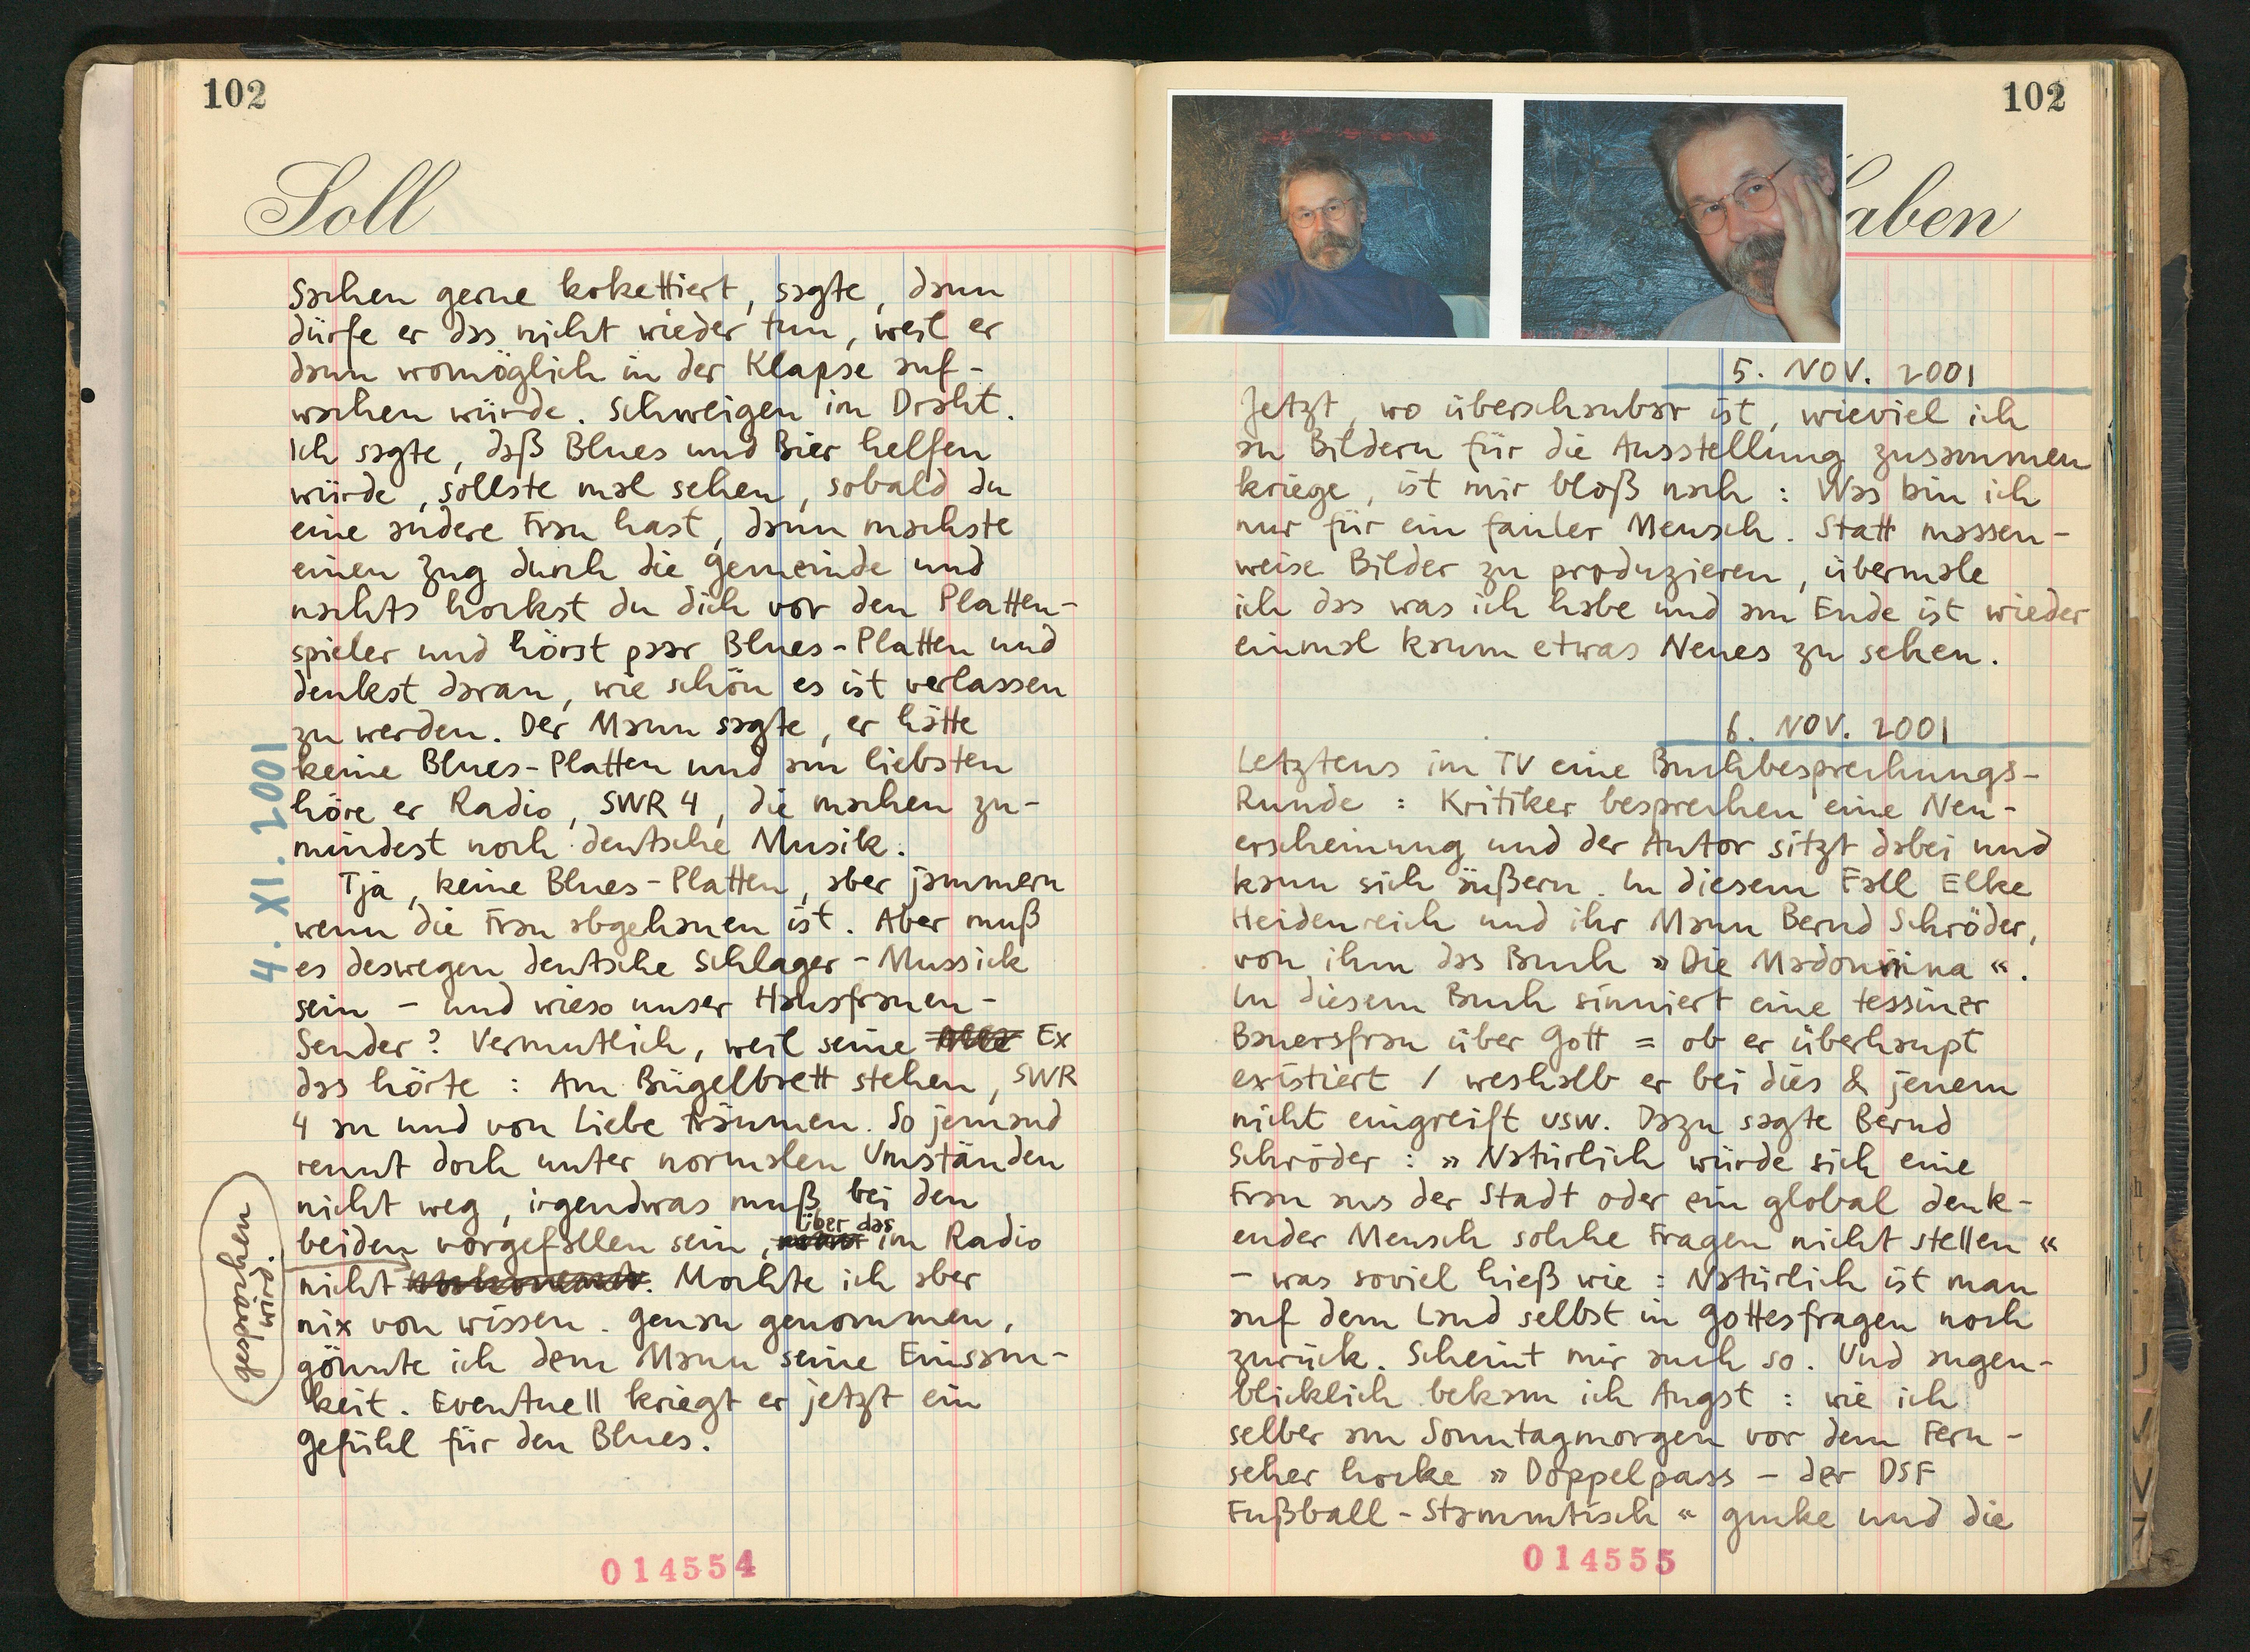 102
Soll
sachen gerne kokettiert, sagte, dann
dürfe er das nicht wieder tun, weil er
dann womöglich in der Klapse auf-
wachen würde. Schweigen im Draht.
Ich sagte, daß Blues und Bier helfen
würde, sollste mal sehen, sobald du
eine andere Frau hast, dann machste
einen Zug durch die Gemeinde und
nachts hockst du dich vor den Platten-
spieler und hörst paar Blues-Platten und
denkst daran, wie schön es ist verlassen
zu werden. Der Mann sagte, er hätte
keine Blues-Platten und am liebsten
höre er Radio, SWR 4, die machen zu-
mindest noch deutsche Musik.
Tja, keine Blues-Platten, aber jammern
wenn die Frau abgehauen ist. Aber muß
es deswegen deutsche Schlager-Mussick
sein – und wieso unser Hausfrauen-
Sender? Vermutlich, weil seine Ex
das hörte: Am Bügelbrett stehen, SWR
4 an und von Liebe träumen. So jemand
rennt doch unter normalen Umständen
nicht weg, irgendwas muß bei den
beiden vorgefallen sein, über das im Radio
nicht gesprochen wird. Mochte ich aber
nix von wissen. Genau genommen,
gönnte ich dem Mann seine Einsam-
keit. Eventuell kriegt er jetzt ein
Gefühl für den Blues.
4. XI. 2001
014554
102
Haben
5. NOV. 2001
Jetzt, wo überschaubar ist, wieviel ich
an Bildern für die Ausstellung zusammen
kriege, ist mir bloß nach: Was bin ich
nur für ein fauler Mensch. Statt massen-
weise Bilder zu produzieren, übermale
ich das was ich habe und am Ende ist wieder
einmal kaum etwas Neues zu sehen.
6. NOV. 2001
Letztens im TV eine Buchbesprechungs-
Runde: Kritiker besprechen eine Neu-
erscheinung und der Autor sitzt dabei und
kann sich äußern. In diesem Fall Elke
Heidenreich und ihr Mann Bernd Schröder,
von ihm das Buch »Die Madonnina«.
In diesem Buch sinniert eine tessiner
Bauersfrau über Gott = ob er überhaupt
existiert / weshalb er bei dies & jenem
nicht eingreift usw. Dazu sagte Bernd
Schröder: »Natürlich würde sich eine
Frau aus der Stadt oder ein global denk-
ender Mensch solche Fragen nicht stellen«
– was soviel hieß wie: Natürlich ist man
auf dem Land selbst in Gottesfragen noch
zurück. Scheint mir auch so. Und augen-
blicklich bekam ich Angst: wie ich
selber am Sonntagmorgen vor dem Fern-
seher hocke »Doppelpass – der DSF
Fußball-Stammtisch« gucke und die
014555